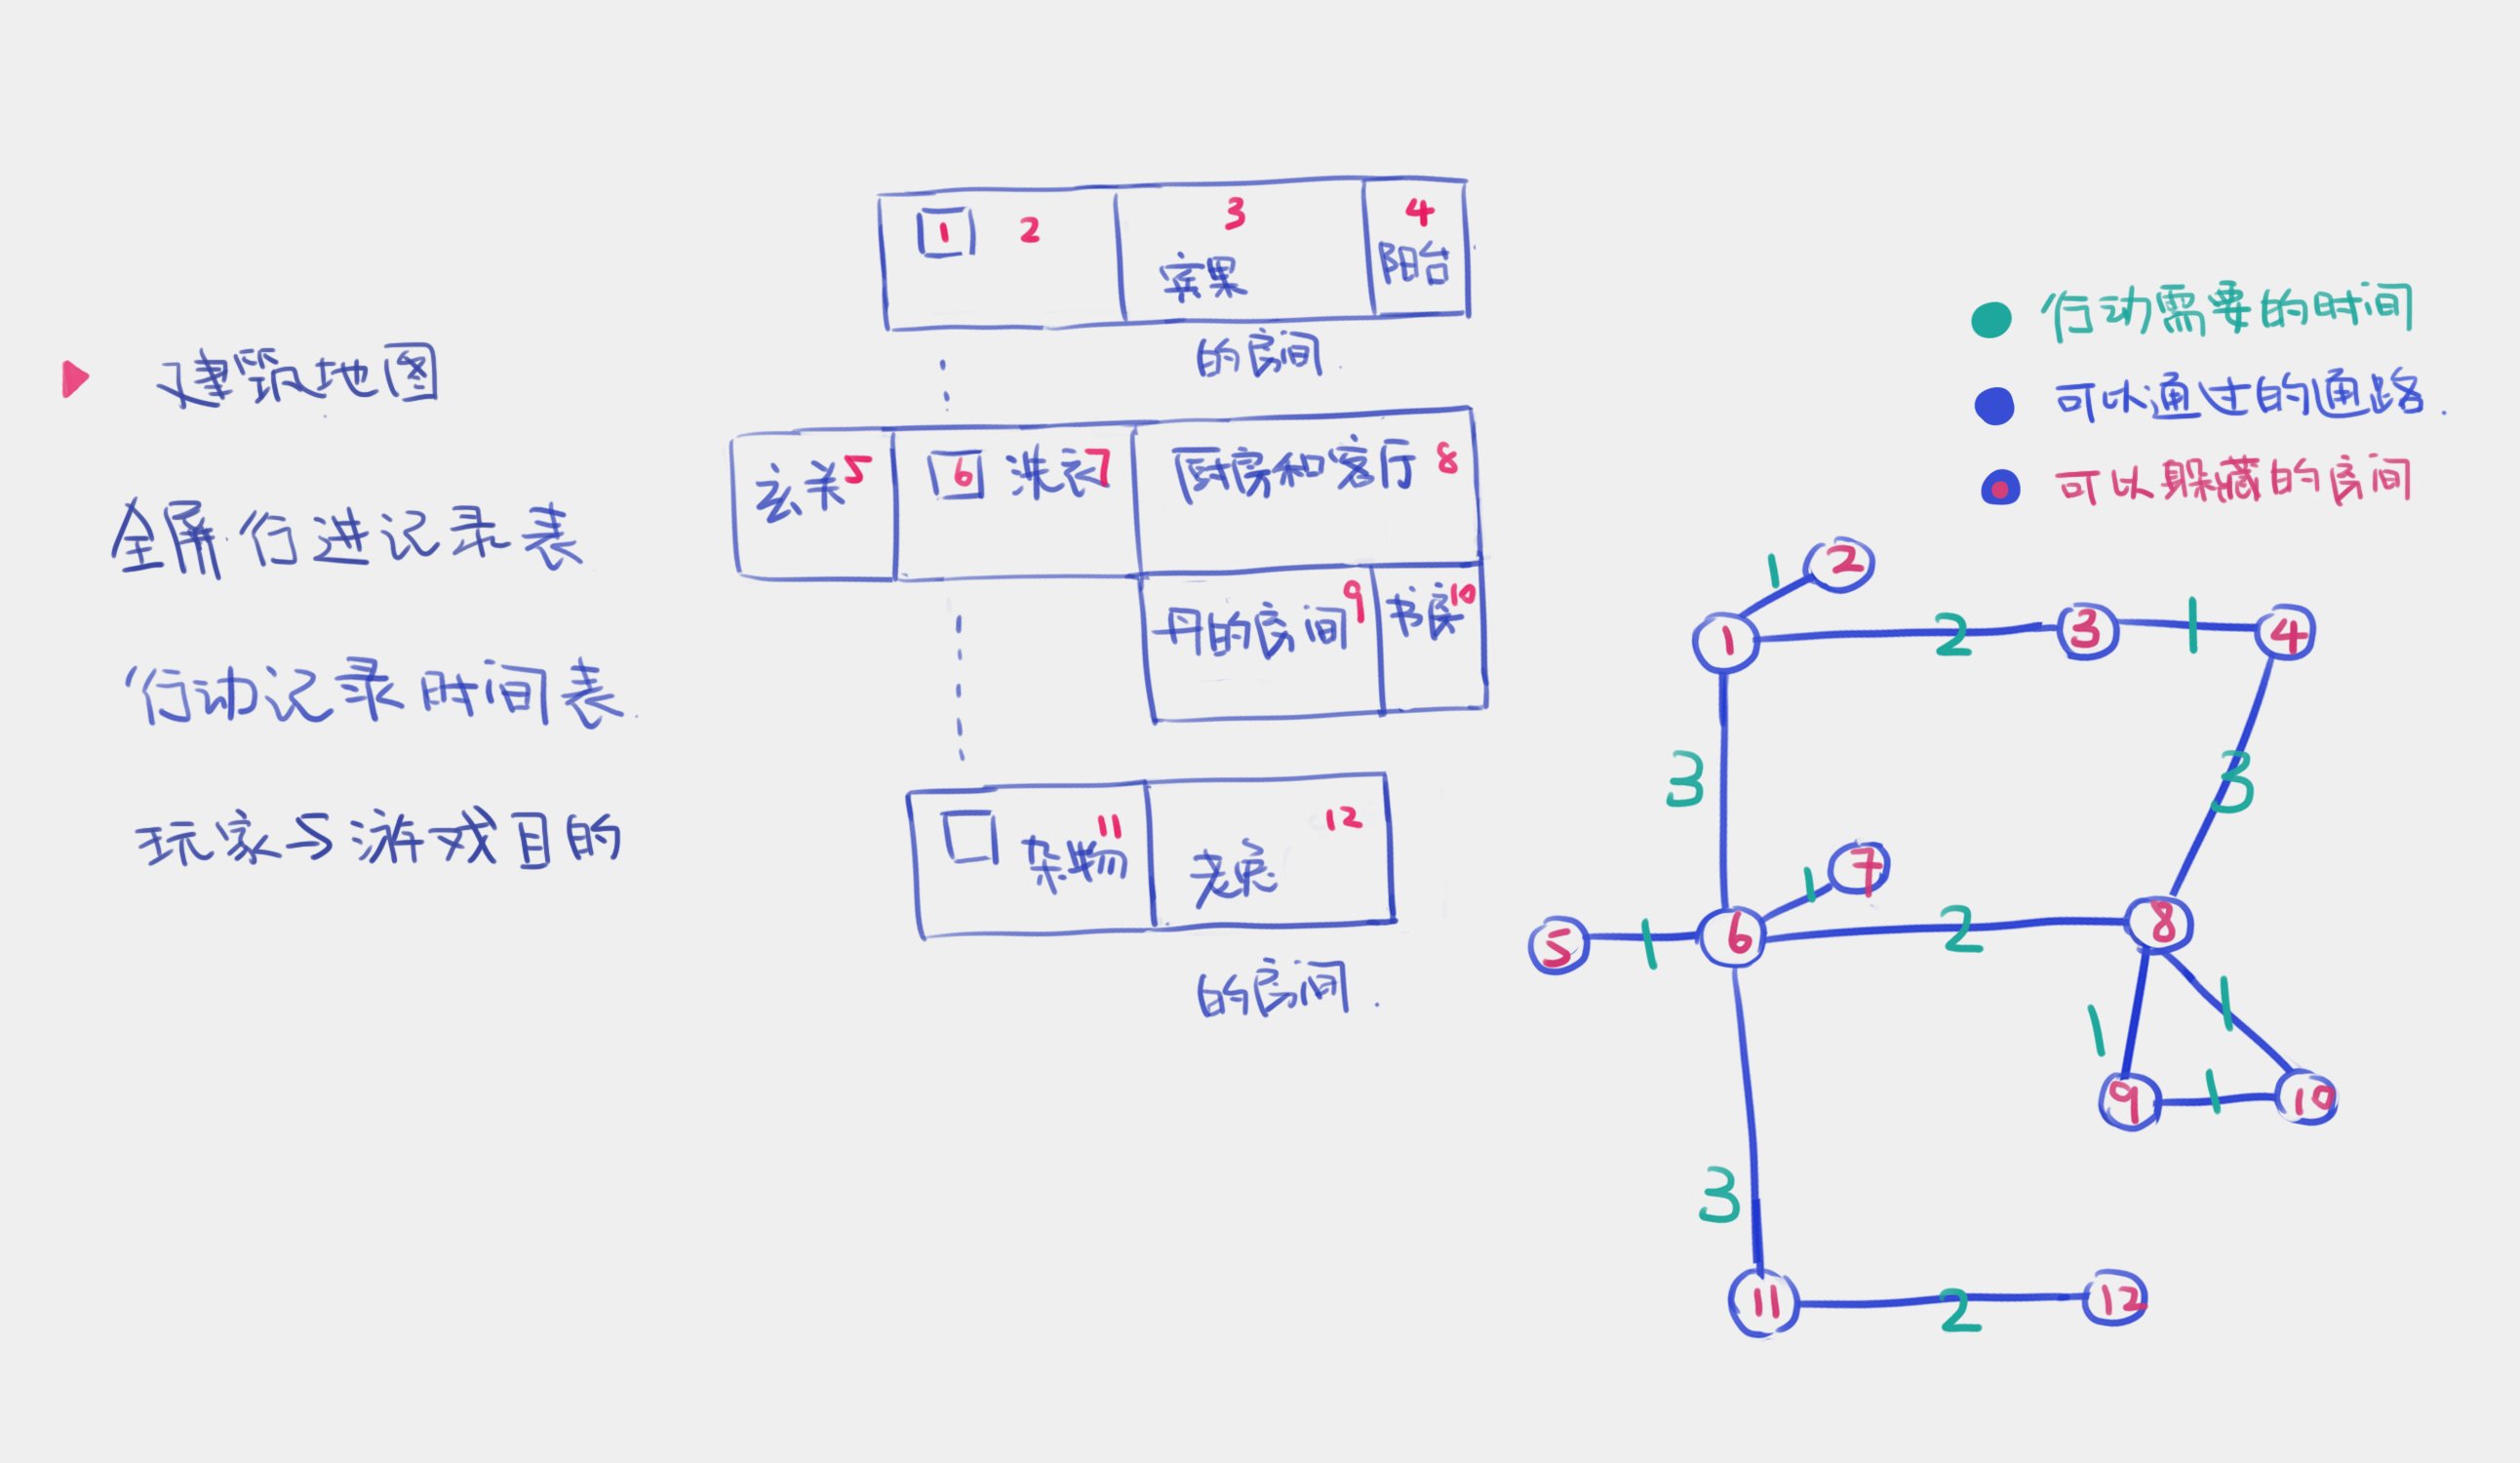 建筑地图
全屏行进记录表
行动记录时间表
玩家→游戏目的
1 2 3 4
阳台
的房间
玄关 5 6 洗衣 7 厨房和客厅 8
丹的房间 9 书房 10
杂物 11 12
的房间
行动需要的时间
可以通过的通路
可以躲藏的房间
1 2
1 2 3 1 4
3 3
1 7
5 1 6 2 8
1 1
9 1 10
3
11 2 12